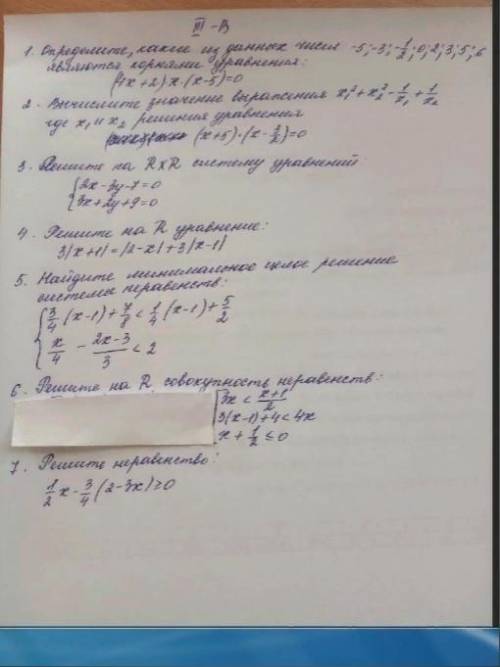 III - В
1. Определите, какие из данных чисел -5; -3; -1/2; 0; 2; 3; 5; 6
являются корнями уравнения:
(4x+2)x(x-5)=0
2. Вычислите значение выражения x₁²+x₂²-1/x₁+1/x₂
где x₁ и x₂ решения уравнения
(x+5)·(x-1/2)=0
3. Решите на RxR систему уравнений
{2x-3y-7=0
3x+2y+9=0
4. Решите на R уравнение:
3|x+1|=|2-x|+3|x-1|
5. Найдите минимальное целое решение
системы неравенств:
{3/4(x-1)+7/8<1/4(x-1)+5/2
x/4-(2x-3)/3<2
6. Решите на R совокупность неравенств:
[3x<(x+1)/2
3(x-1)+4<4x
x+1/2≤0
7. Решите неравенство:
1/2x-3/4(2-3x)≥0